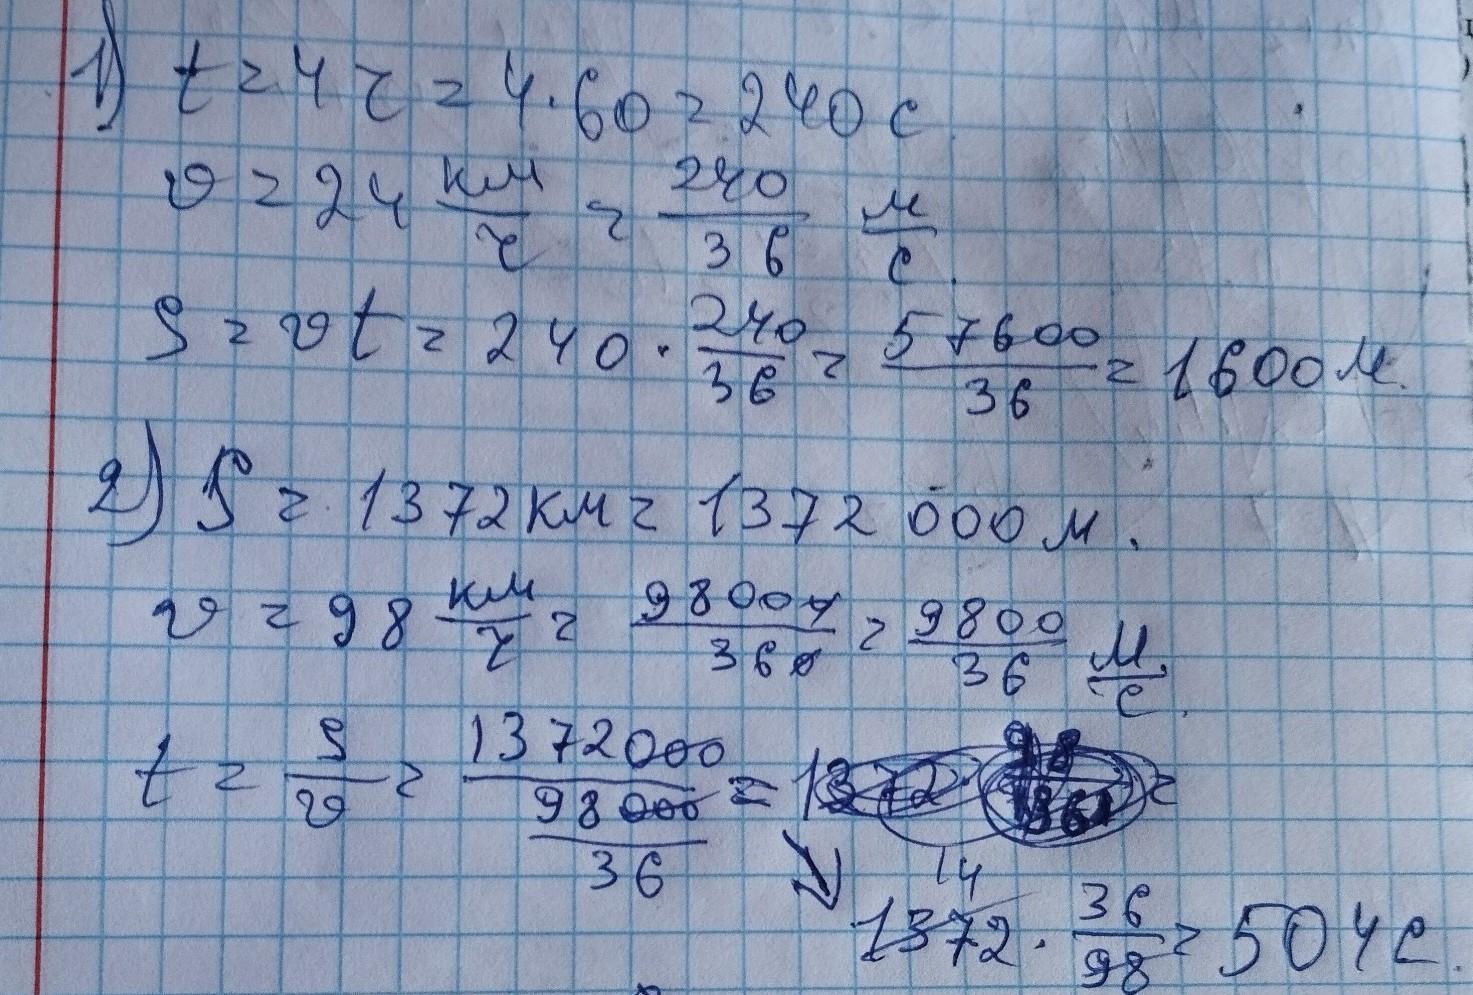 1) t = 4 ч = 4 · 60 = 240 с
v = 24 км/ч = 240/36 м/с.
S = vt = 240 · 240/36 = 57600/36 = 1600 м.
2) S = 1372 км = 1372 000 м.
v = 98 км/ч = 98000/360 = 9800/36 м/с.
t = S/v = 1372000/(98000/36) = 1372 · 98 =
14
1372 · 36/98 = 504 с.